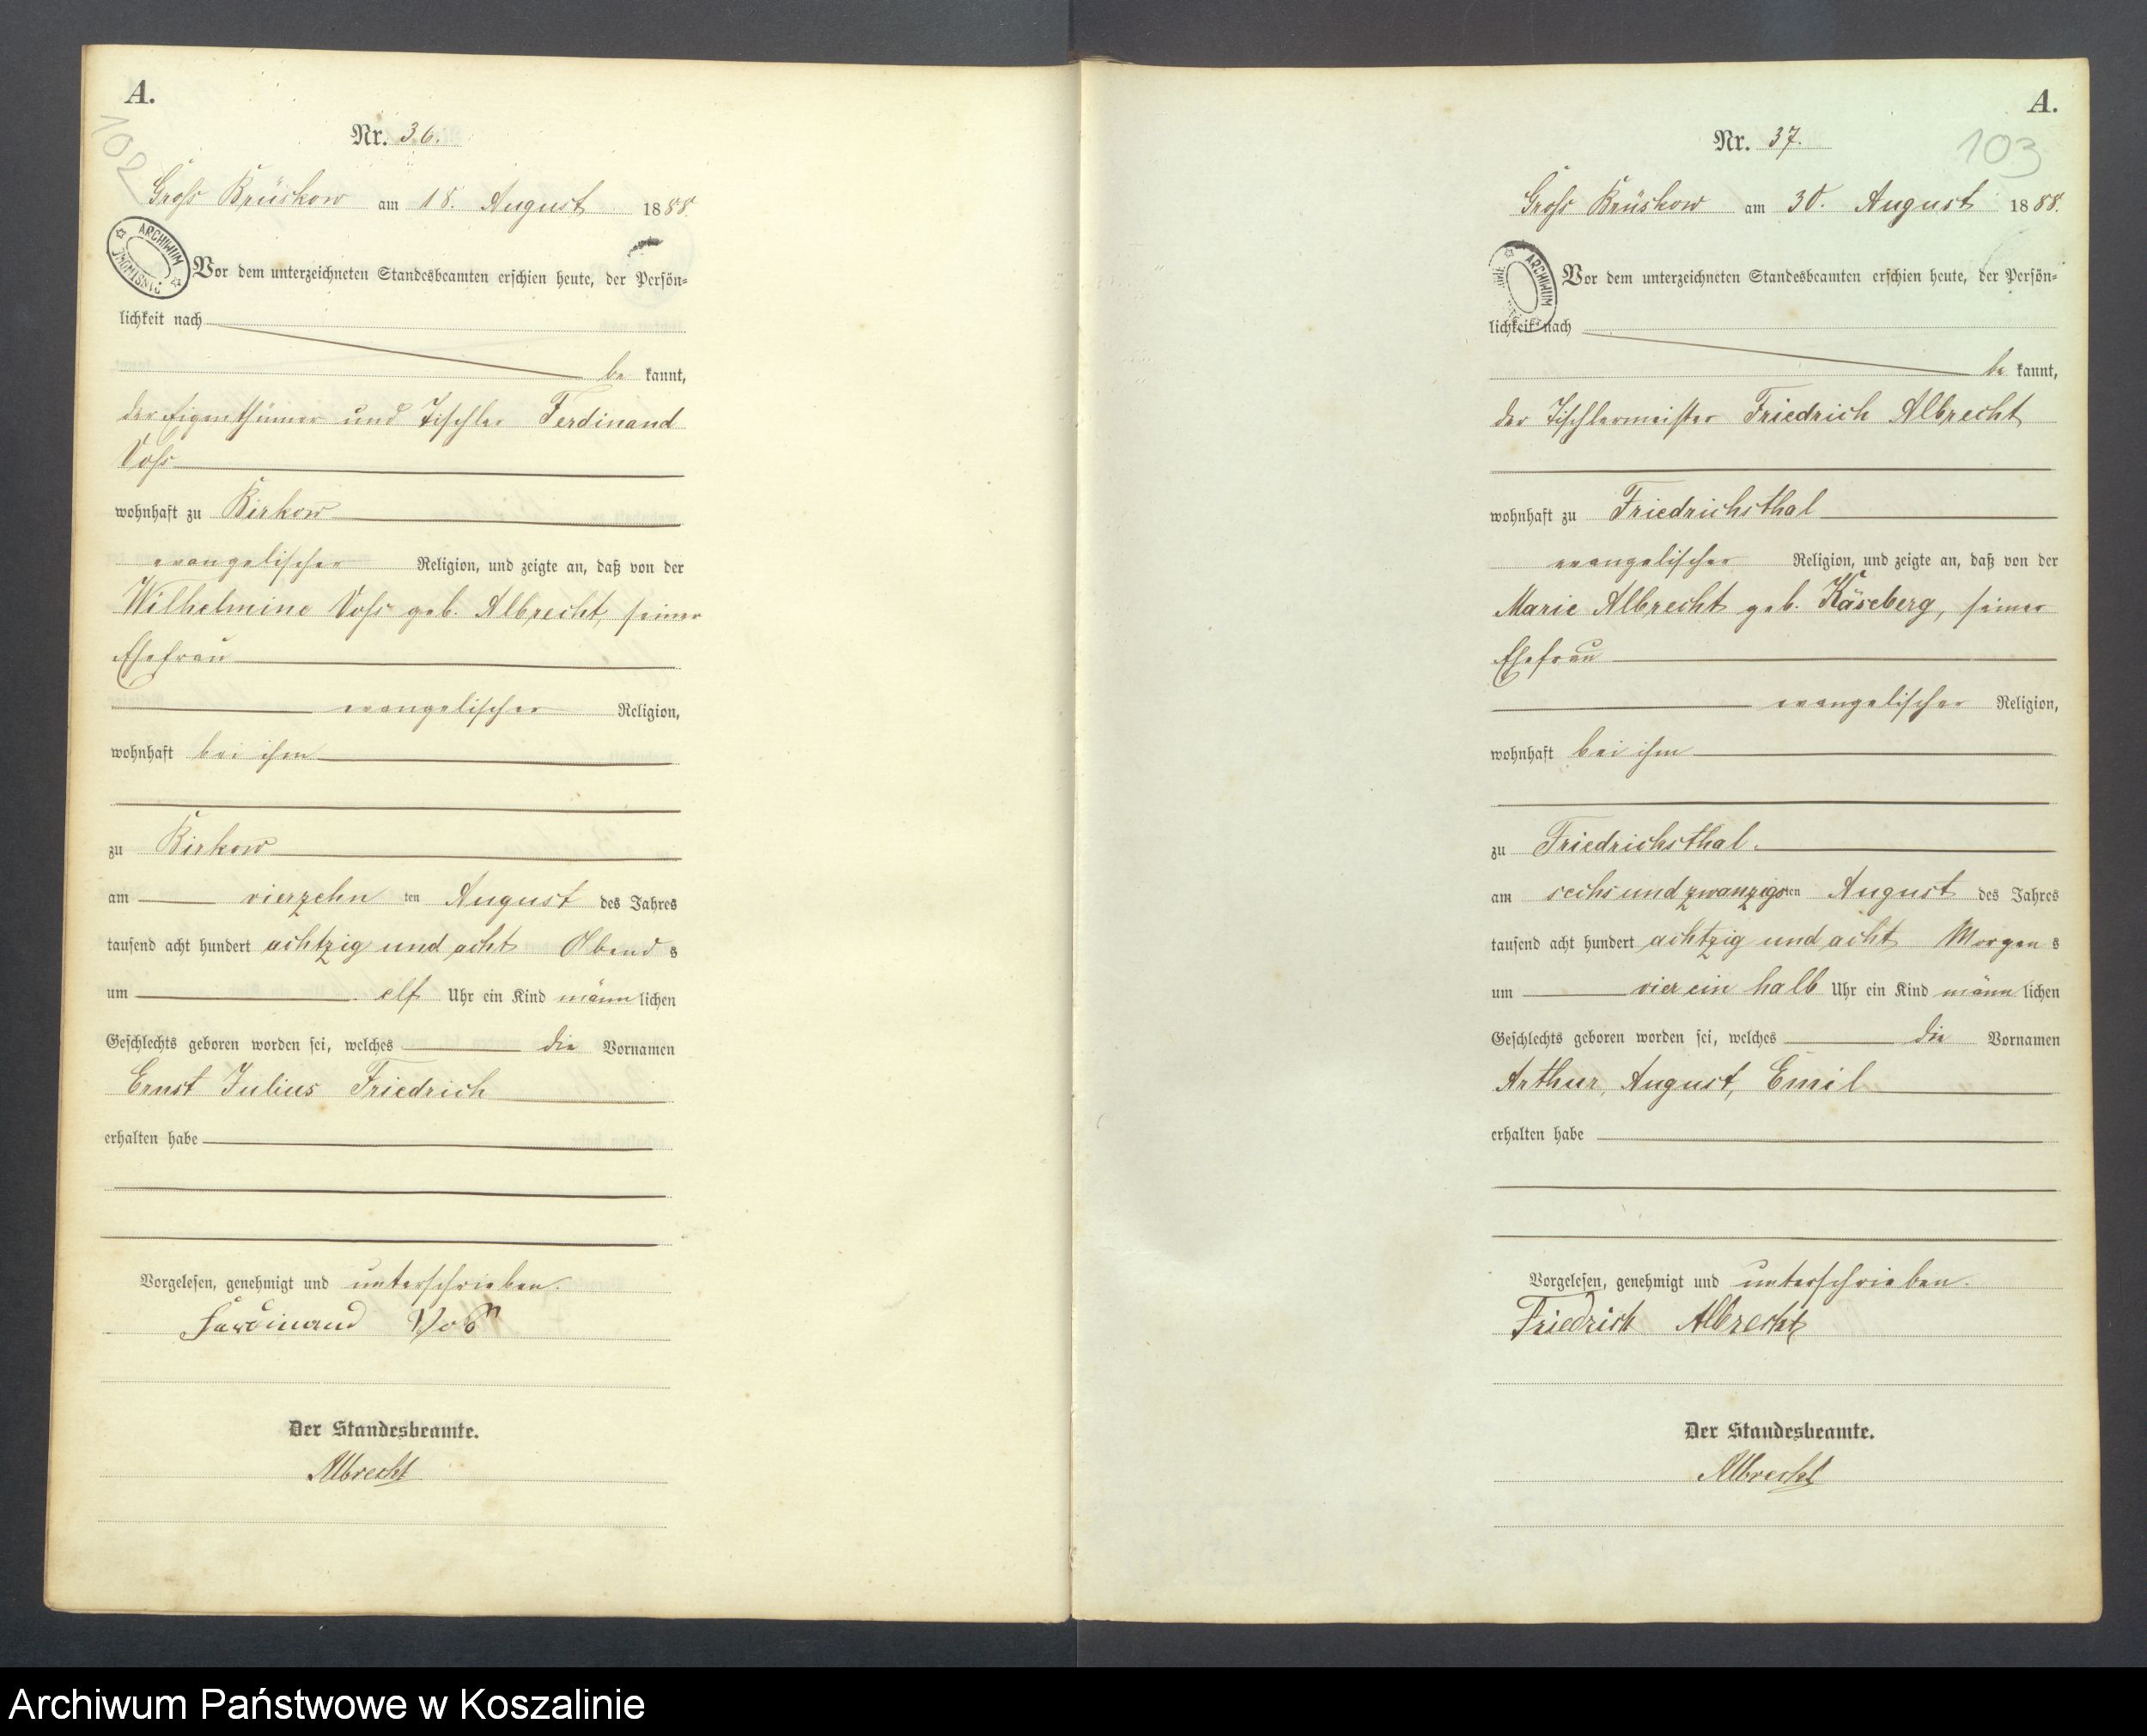 A.
102
Nr. 36.
Gross Brüskow am 18. August 1888.
ARCHIWUM
Vor dem unterzeichneten Standesbeamten erschien heute, der Persön=
lichkeit nach
be kannt,
der Eigenthümer und Tischler Ferdinand
Voss
wohnhaft zu Birkow
evangelischer Religion, und zeigte an, daß von der
Wilhelmine Voss geb. Albrecht, seiner
Ehefrau
evangelischer Religion,
wohnhaft bei ihm
zu Birkow
am vierzehn ten August des Jahres
tausend acht hundert achtzig und acht Abend s
um elf Uhr ein Kind männ lichen
Geschlechts geboren worden sei, welches die Vornamen
Ernst Julius Friedrich
erhalten habe
Vorgelesen, genehmigt und unterschrieben.
Ferdinand Voß
Der Standesbeamte.
Albrecht
A.
103
Nr. 37.
Gross Brüskow am 30. August 1888.
ARCHIWUM
Vor dem unterzeichneten Standesbeamten erschien heute, der Persön=
lichkeit nach
be kannt,
der Tischlermeister Friedrich Albrecht
wohnhaft zu Friedrichsthal
evangelischer Religion, und zeigte an, daß von der
Marie Albrecht geb. Käseberg, seiner
Ehefrau
evangelischer Religion,
wohnhaft bei ihm
zu Friedrichsthal.
am sechsundzwanzigsten August des Jahres
tausend acht hundert achtzig und acht Morgen s
um vier ein halb Uhr ein Kind männ lichen
Geschlechts geboren worden sei, welches die Vornamen
Arthur, August, Emil
erhalten habe
Vorgelesen, genehmigt und unterschrieben.
Friedrich Albrecht
Der Standesbeamte.
Albrecht
Archiwum Państwowe w Koszalinie